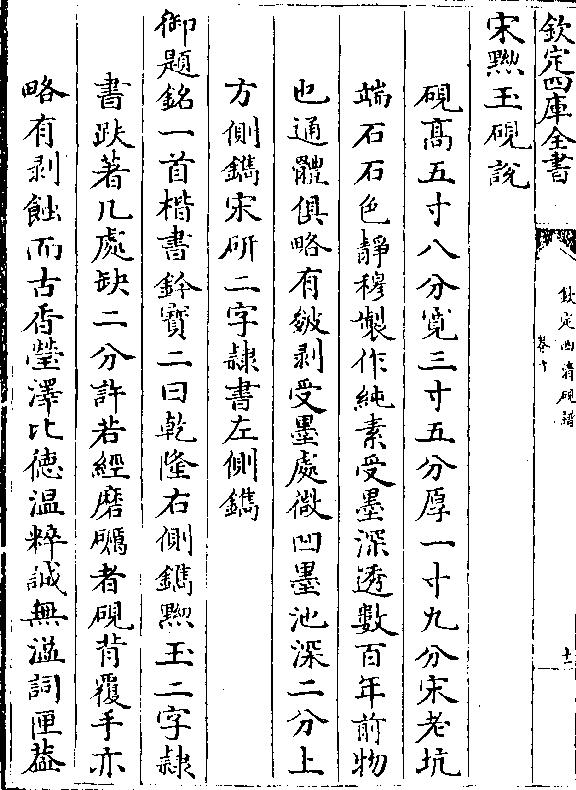 欽定四庫全書
欽定西清硯譜
卷十
十一
宋黝玉硯説
硯髙五寸八分寛三寸五分厚一寸九分宋老坑
端石石色靜穆製作純素受墨深透數百年前物
也通體俱略有皴剥受墨處微凹墨池深二分上
方側鐫宋硏二字隷書左側鐫
御題銘一首楷書鈐寳二曰乾隆右側鐫黝玉二字隷
書趺著几處缺二分許若經磨礪者硯背覆手亦
略有剥蝕而古香瑩澤比徳温粹誠無溢詞匣葢